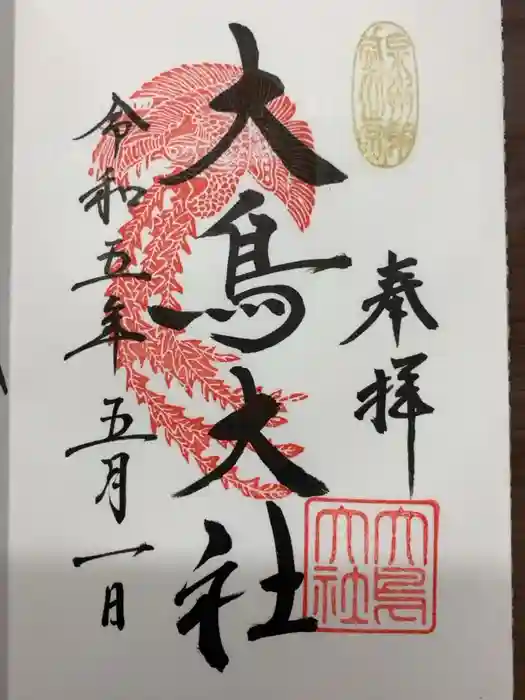 奉拝
大鳥大社
令和五年五月一日
大鳥大社